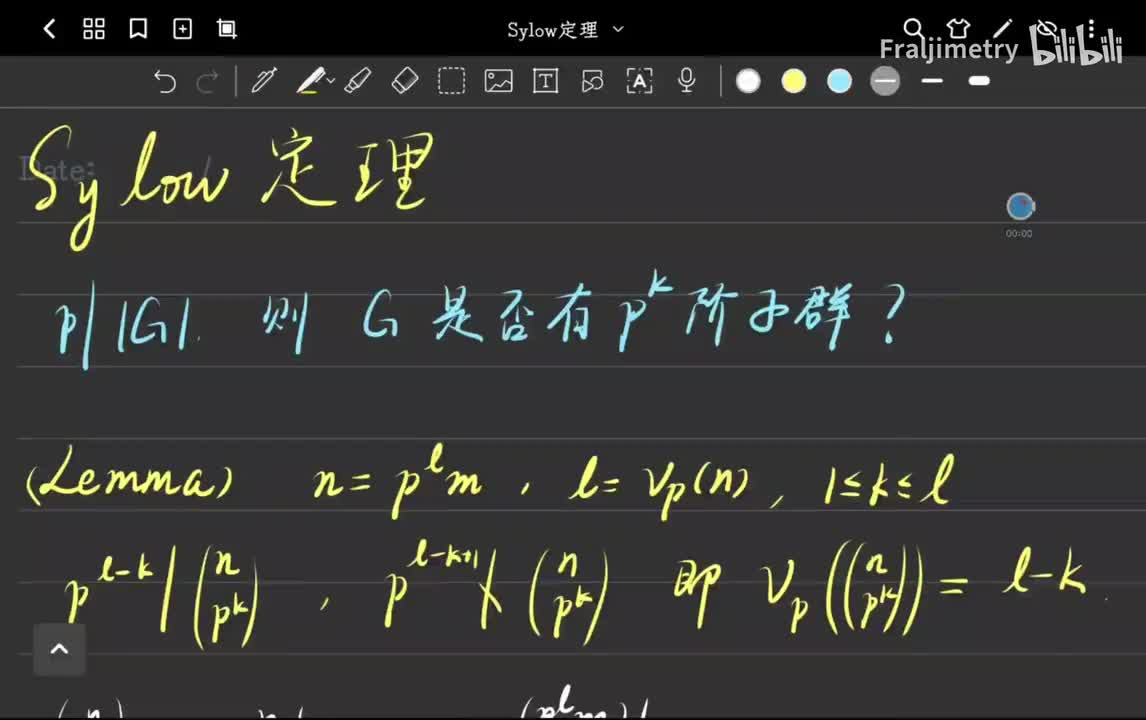 Sylow定理
Fraljimetry bilibili
Date:
Sylow 定理
00:00
p||G|. 则 G 是否有 p^k 阶子群?
(Lemma) n = p^l m , l = v_p(n), 1≤k≤l
p^{l-k} | \binom{n}{p^k} , p^{l-k+1} ∤ \binom{n}{p^k} 即 v_p(\binom{n}{p^k}) = l-k.